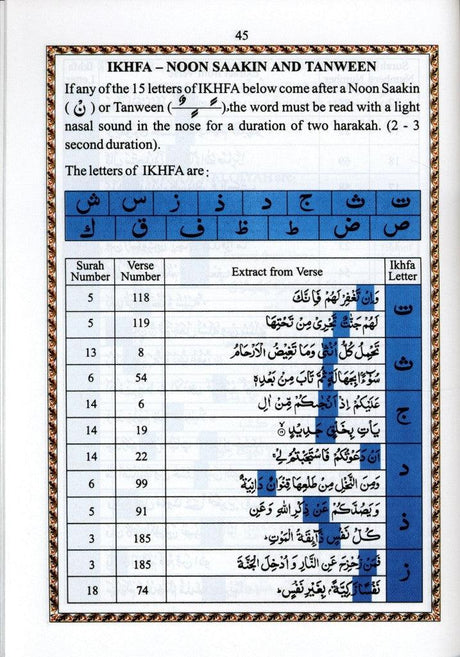 45
IKHFA – NOON SAAKIN AND TANWEEN
If any of the 15 letters of IKHFA below come after a Noon Saakin
( نْ ) or Tanween ( ـًـٍـٌ ), the word must be read with a light
nasal sound in the nose for a duration of two harakah. (2 - 3
second duration).
The letters of IKHFA are:
ت ث ج د ذ ز س ش
ص ض ط ظ ف ق ك
Surah Number Verse Number Extract from Verse Ikhfa Letter
5 118 وَاِنْ تَغْفِرْ لَهُمْ فَاِنَّكَ ت
5 119 لَهُمْ جَنّٰتٌ تَجْرِيْ مِنْ تَحْتِهَا
13 8 تَحْمِلُ كُلُّ اُنْثٰى وَمَا تَغِيْضُ الْاَرْحَامُ ث
6 54 سُوْٓءًۢا بِجَهَالَةٍ ثُمَّ تَابَ مِنْ بَعْدِهٖ
14 6 عَلَيْكُمْ اِذْ اَنْجٰىكُمْ مِّنْ اٰلِ ج
14 19 يَاْتِ بِخَلْقٍ جَدِيْدٍ
14 22 اَنْ دَعَوْتُكُمْ فَاسْتَجَبْتُمْ لِيْ د
6 99 وَمِنَ النَّخْلِ مِنْ طَلْعِهَا قِنْوَانٌ دَانِيَةٌ
5 91 وَيَصُدَّكُمْ عَنْ ذِكْرِ اللّٰهِ وَعَنِ ذ
3 185 كُلُّ نَفْسٍ ذَآئِقَةُ الْمَوْتِ
3 185 فَمَنْ زُحْزِحَ عَنِ النَّارِ وَاُدْخِلَ الْجَنَّةَ ز
18 74 نَفْسًا زَكِيَّةًۢ بِغَيْرِ نَفْسٍ